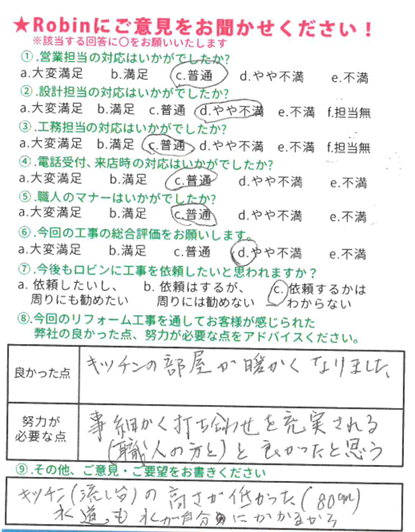 ★Robinにご意見をお聞かせください！
※該当する回答に○をお願いいたします
①.営業担当の対応はいかがでしたか?
a.大変満足 b.満足 c.普通 d.やや不満 e.不満
②.設計担当の対応はいかがでしたか?
a.大変満足 b.満足 c.普通 d.やや不満 e.不満 f.担当無
③.工務担当の対応はいかがでしたか?
a.大変満足 b.満足 c.普通 d.やや不満 e.不満 f.担当無
④.電話受付、来店時の対応はいかがでしたか?
a.大変満足 b.満足 c.普通 d.やや不満 e.不満
⑤.職人のマナーはいかがでしたか?
a.大変満足 b.満足 c.普通 d.やや不満 e.不満
⑥.今回の工事の総合評価をお願いします。
a.大変満足 b.満足 c.普通 d.やや不満 e.不満
⑦.今後もロビンに工事を依頼したいと思われますか？
a. 依頼したいし、 b. 依頼はするが、 c. 依頼するかは
周りにも勧めたい 周りには勧めない わからない
⑧.今回のリフォーム工事を通してお客様が感じられた
弊社の良かった点、努力が必要な点をアドバイスください。
良かった点 キッチンの部屋が暖かくなりました、
努力が
必要な点
事細かく打ち合わせを充実される
(職人の方と)と良かったと思う
⑨.その他、ご意見・ご要望をお書きください
キッチン(流し台)の高さが低かった(80cm)
水道も水が自分にかかるから